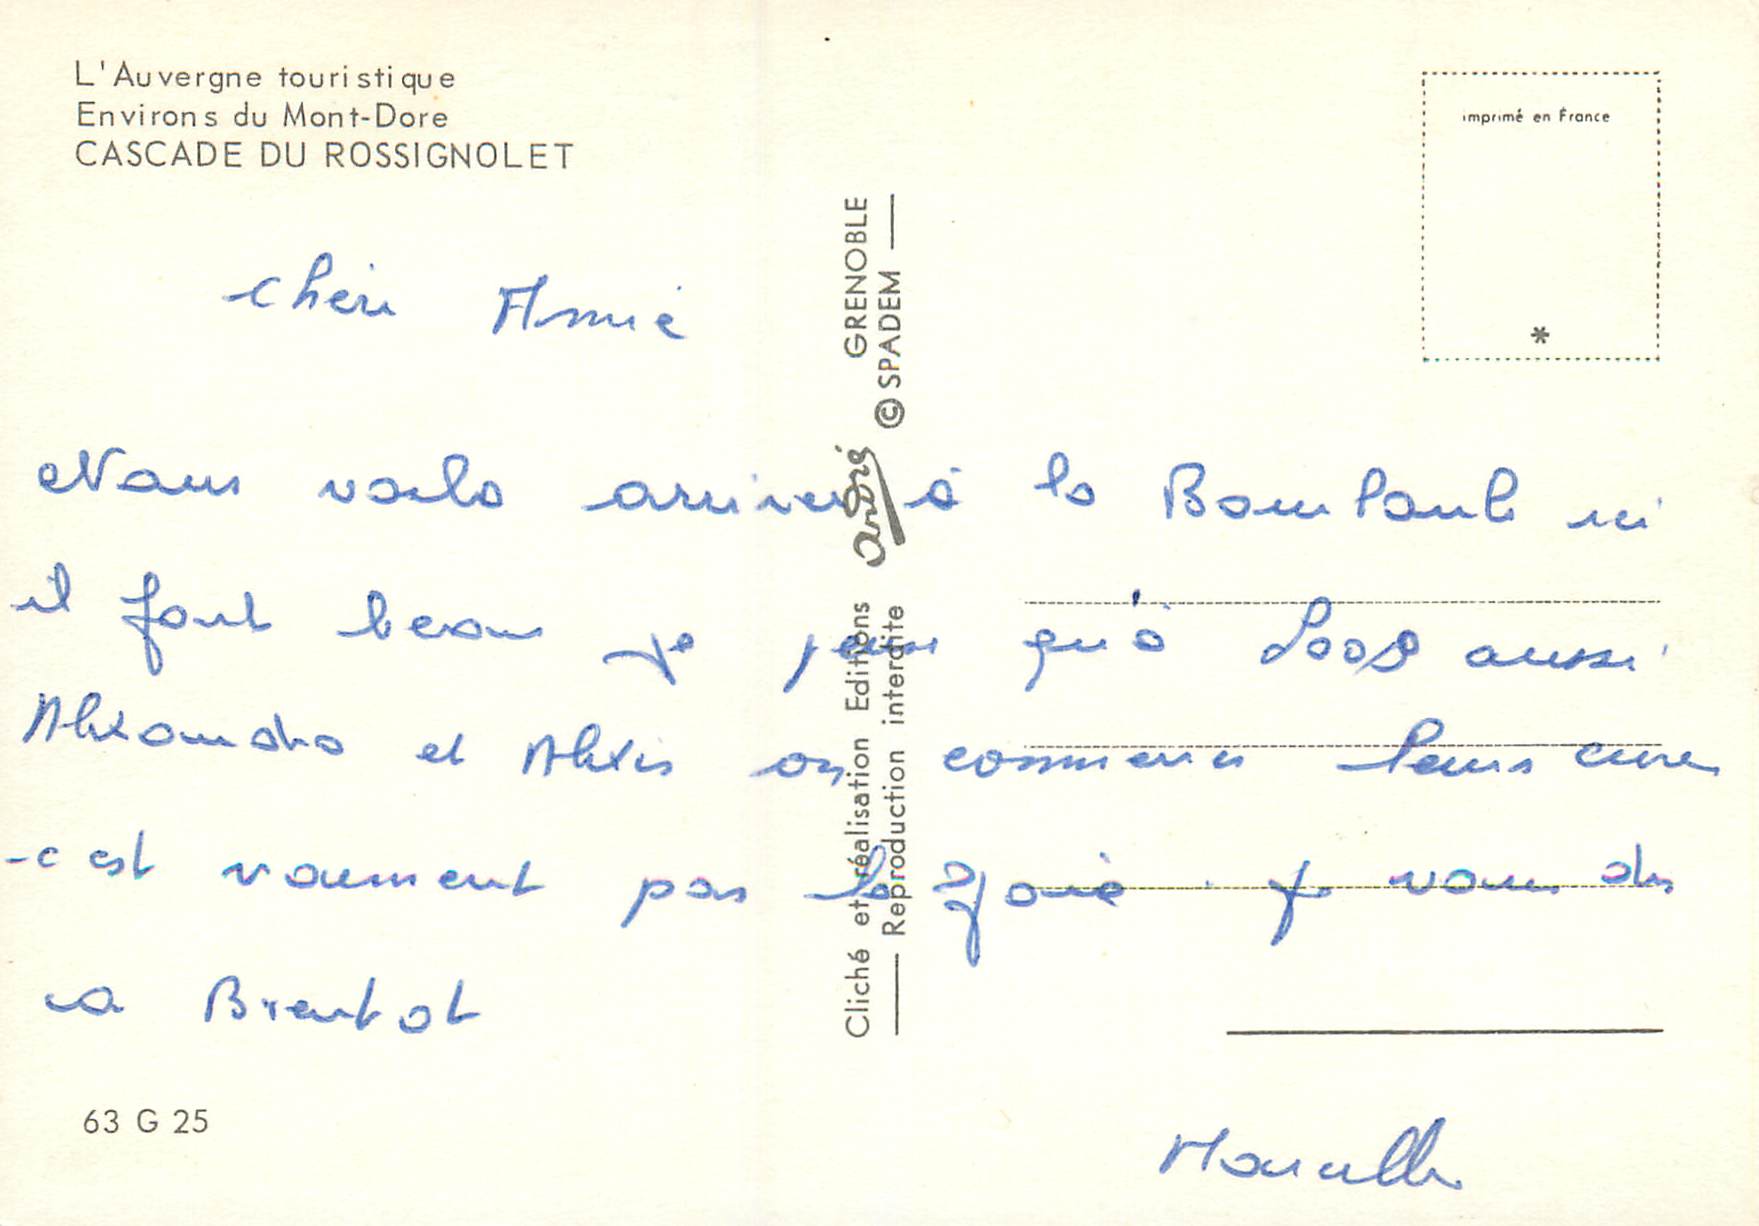 L'Auvergne touristique
Environs du Mont-Dore
CASCADE DU ROSSIGNOLET
imprimé en France
*
chère Amie
Nous voila arriver à la Bourboule ici
il fait beau je pense qu'à aussi
Alexandra et Alexis on commencer leurs cure
c est vraiment pas la joie. je vous dis
a Bientot
Marcelle
63 G 25
Cliché et réalisation Editions andré GRENOBLE
Reproduction interdite © SPADEM